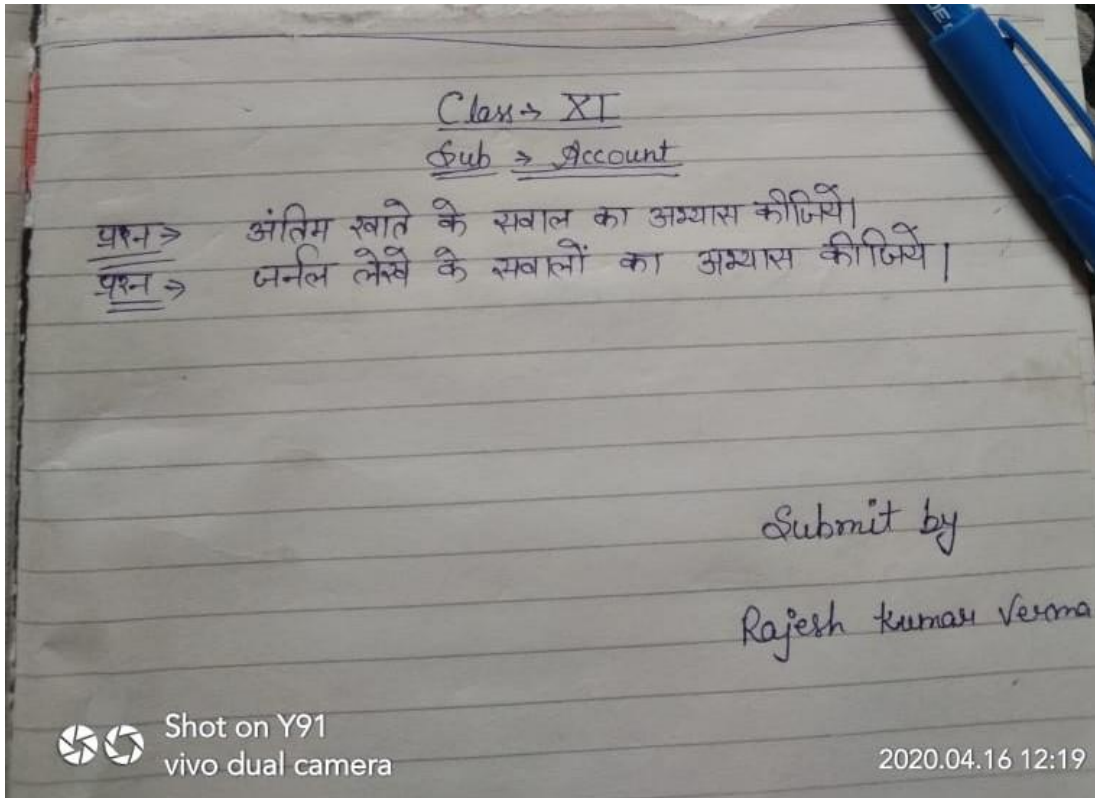 Class → XI
Sub → Account
प्रश्न → अंतिम खाते के सवाल का अभ्यास कीजियें।
प्रश्न → जर्नल लेखे के सवालों का अभ्यास कीजियें।
Submit by
Rajesh Kumar Verma
Shot on Y91
vivo dual camera
2020.04.16 12:19